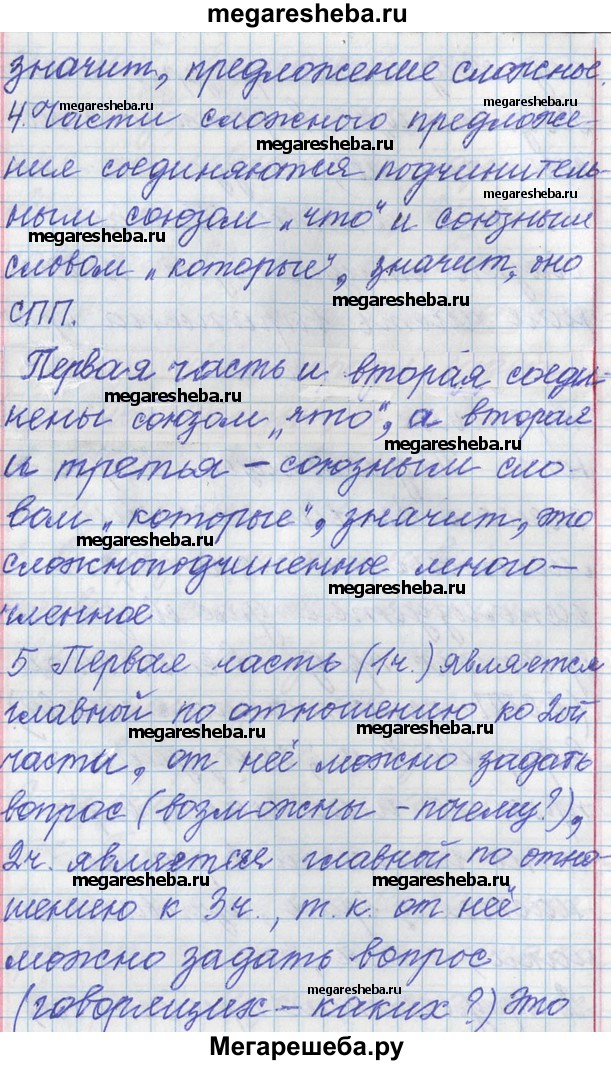 megaresheba.ru
значит, предложение сложное.
megaresheba.ru megaresheba.ru
4. Части сложного предложе-
ния соединяются подчинитель-
megaresheba.ru
ным союзом „что“ и союзным
megaresheba.ru
словом „которые“, значит, оно
megaresheba.ru
СПП.
Первая часть и вторая соеди-
megaresheba.ru
нены союзом „что“, а вторая
megaresheba.ru
и третья – союзным сло-
вом „которые“, значит, это
megaresheba.ru
сложноподчиненное много-
megaresheba.ru
членное
5 Первая часть (1ч.) является
главной по отношению ко 2ой
megaresheba.ru
части, от неё можно задать
вопрос (возможны – почему?),
2ч. является главной по отно-
megaresheba.ru megaresheba.ru
шению к 3ч., т.к. от неё
можно задать вопрос
megaresheba.ru
(говорящих – каких?) Это
Мегарешеба.ру